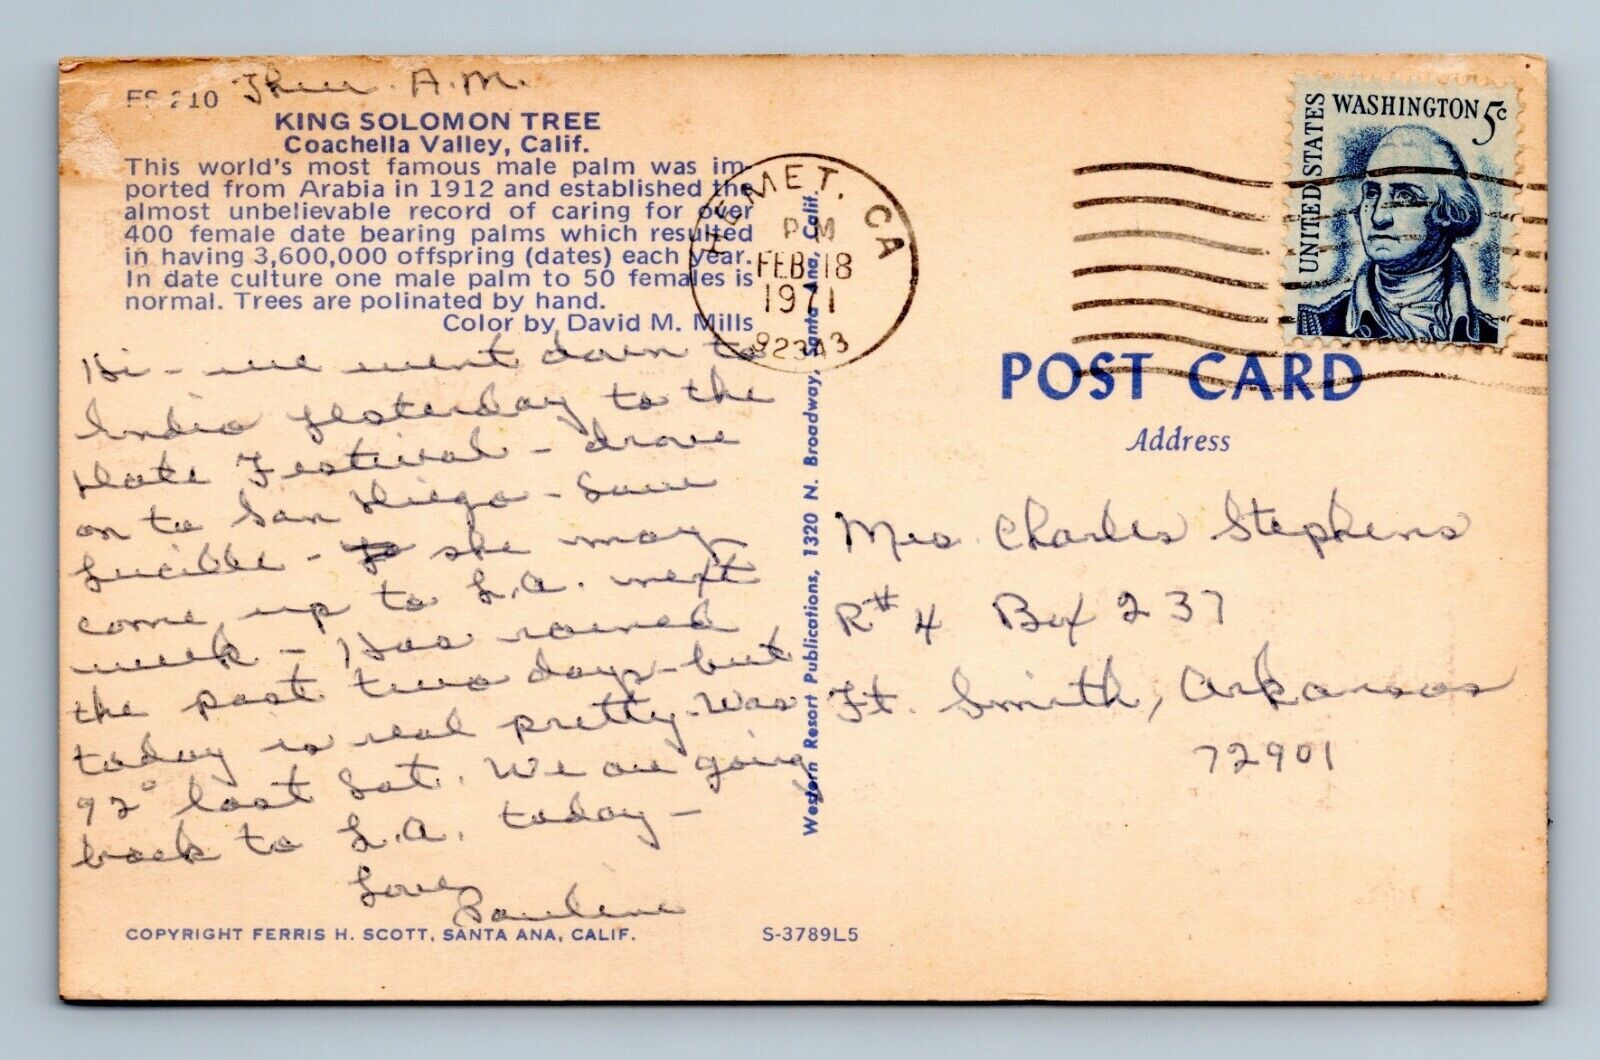 Thur. A.M.
210
KING SOLOMON TREE
Coachella Valley, Calif.
This world's most famous male palm was im-
ported from Arabia in 1912 and established the
almost unbelievable record of caring for over
400 female date bearing palms which resulted
in having 3,600,000 offspring (dates) each year.
In date culture one male palm to 50 females is
normal. Trees are polinated by hand.
Color by David M. Mills
Hi - we went down to
Indio yesterday to the
Date Festival - drove
on to San Diego - Saw
Lucille - she may
come up to L.A. next
week - Has rained
the past two days - but
today is real pretty. Was
92° last Sat. We are going
back to L.A. today -
Love,
Pauline
COPYRIGHT FERRIS H. SCOTT, SANTA ANA, CALIF.
S-3789L5
Western Resort Publications, 1320 N. Broadway, Santa Ana, Calif.
HEMET, CA
PM
FEB 18
1971
92343
UNITED STATES
WASHINGTON 5c
POST CARD
Address
Mrs. Charles Stephens
R# 4 Box 237
Ft. Smith, Arkansas
72901